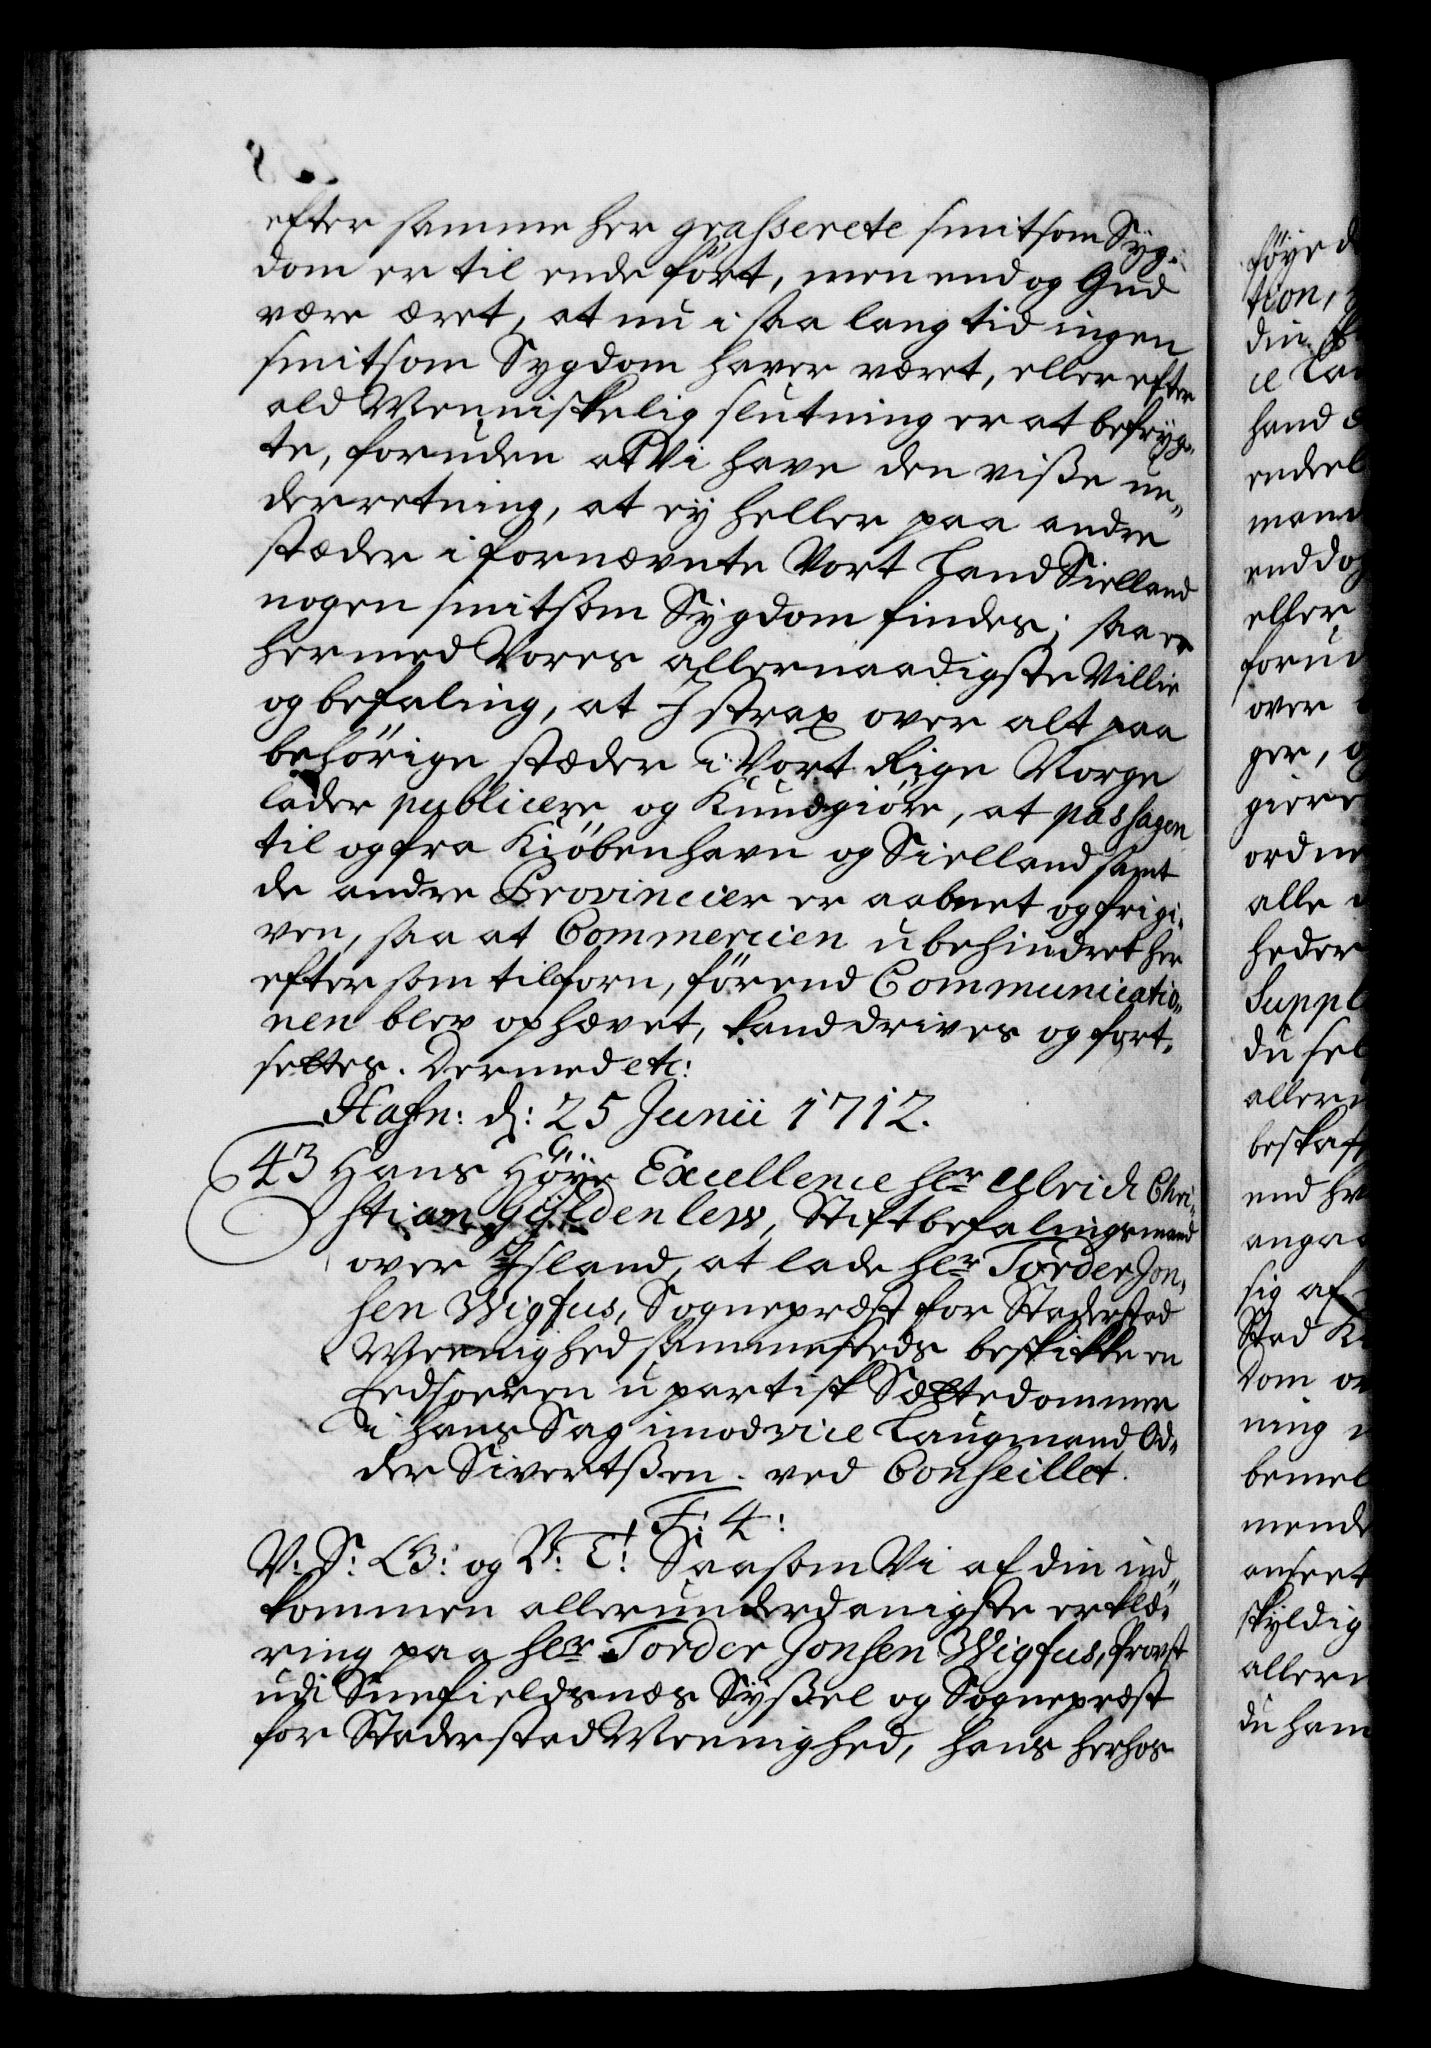 efter samme her grasserete smitsom Syg-
dom er til ende fört, men end og Gud
være æret, at nu i saa lang tid ingen
smitsom Sygdom haver været, eller efter
ald Menniskelig slutning er at befryg-
te, foruden at Vi have den visse un-
derretning, at ey heller paa andre
stæder i fornævnte Vort Land Sielland
nogen smitsom Sygdom findes; saa er
hermed Vores allernaadigste Villie
og befaling, at I strax over alt paa
behörige stæder i Vort Rige Norge
lader publicere og Kundgiöre, at passagen
til og fra Kiöbenhavn og Sielland samt
de andre Provincier er aabnet og frigi-
ven, saa at Commercien ubehindret her
efter som tilforn, förend Communicatio-
nen blev ophævet, kand drives og fort-
settes. Dermed etc:
Hafn: d: 25 Junii 1712.
43 Hans Höye Excellence hlr Ulrich Chri-
stian Gyldenlew, Stiftbefalingsmand
over Island, at lade hlr Torder Jon-
sen Wigfus, Sognepræst for Staderstad
Meenighed sammesteds beskikke en
Eedsoeren upartisk Sættedommer
i hans Sag imod vice Laugmand Od-
der Sivertssen. ved Conseillet.
F: 4:
V: S: G: og V: T: Saasom Vi af din ind-
kommen allerunderdanigste erklæ-
ring paa hlr Torder Jonsen Wigfus, Provst
udi Snefieldsnæs Syssel og Sognepræst
for Staderstad Meenighed, hans her hos